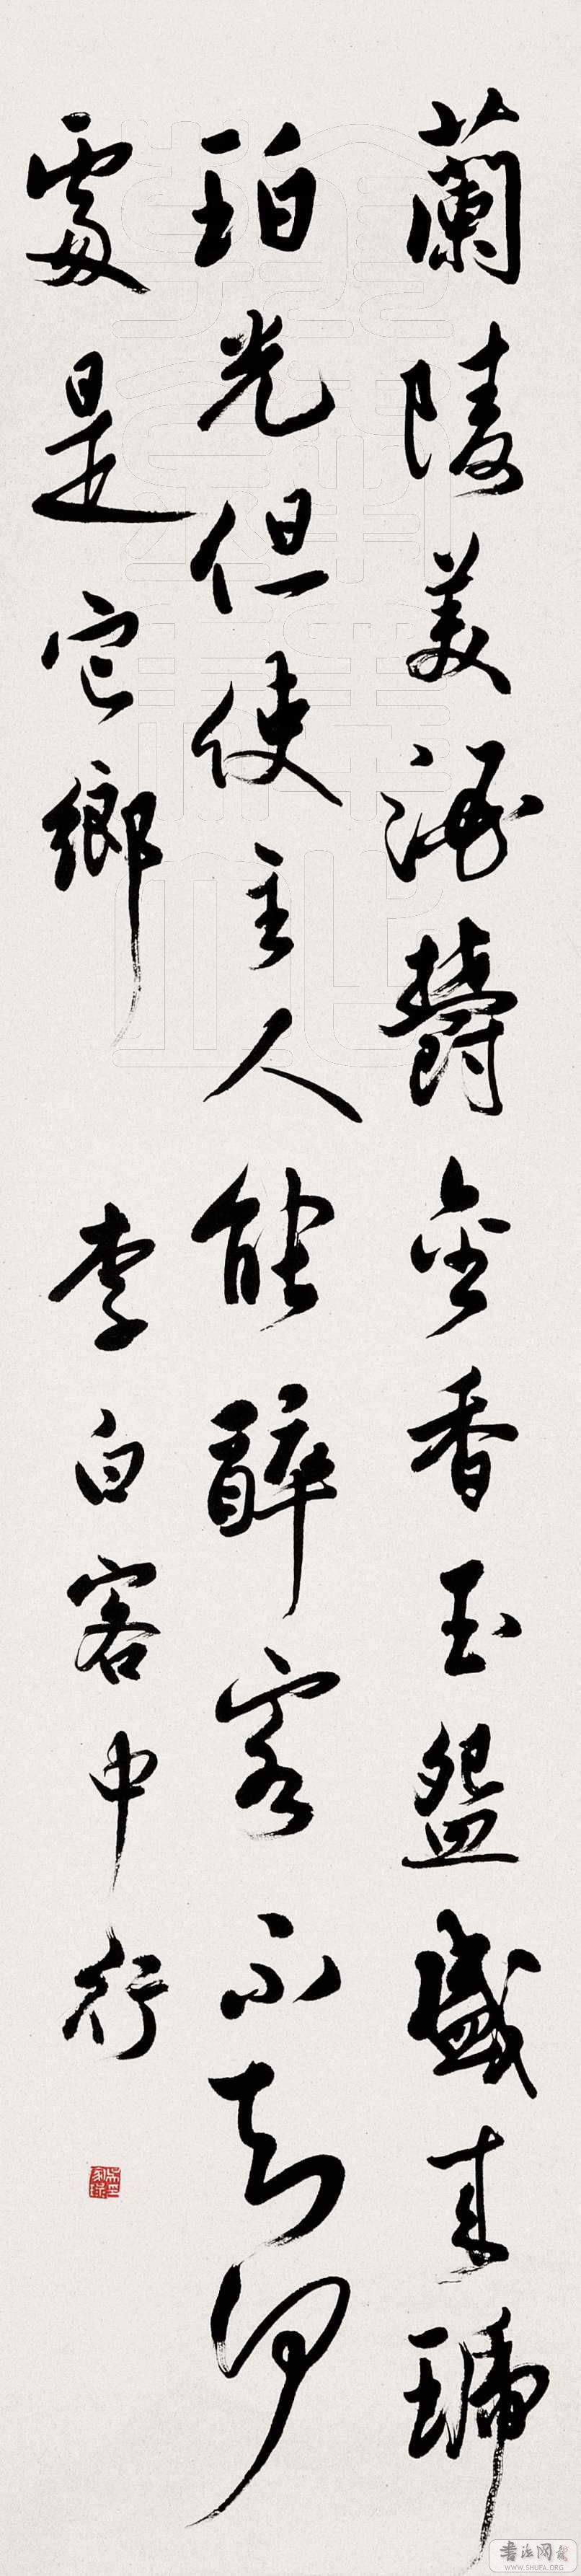 蘭陵美酒欝金香玉盌盛来琥
珀光但使主人能醉客不知何
處是它鄉
李白客中行
書法网
WWW.SHUFA.ORG